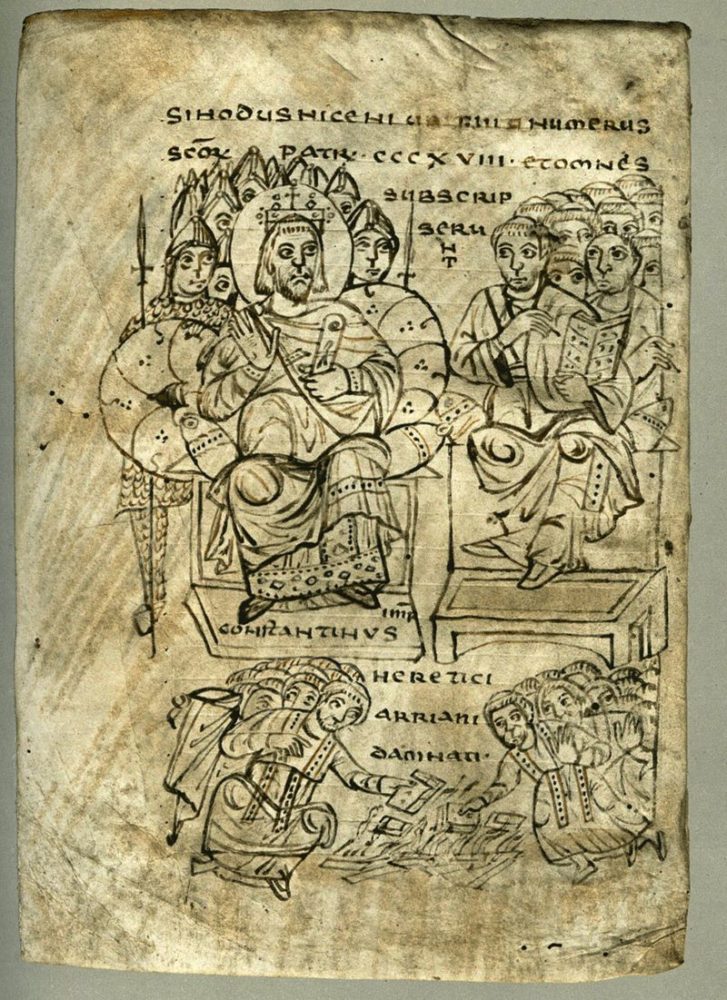 SINODUS NICENI UBI NUMERUS
SCŌR PATR · CCCXVIII · ET OMNES
SUBSCRIP
SERU
NT
IMP
CONSTANTINUS
HERETICI
ARRIANI
DAMNATI ·